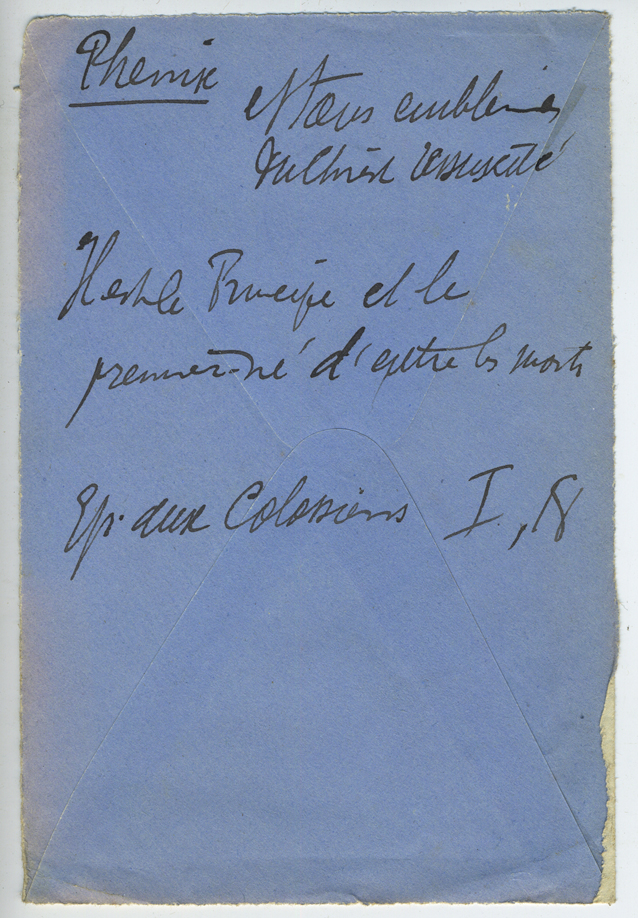 Phenix
et emblèmes
du Christ ressuscité
Il est le Principe et le
premier-né d'entre les morts
Ep. aux Colossiens I, 18